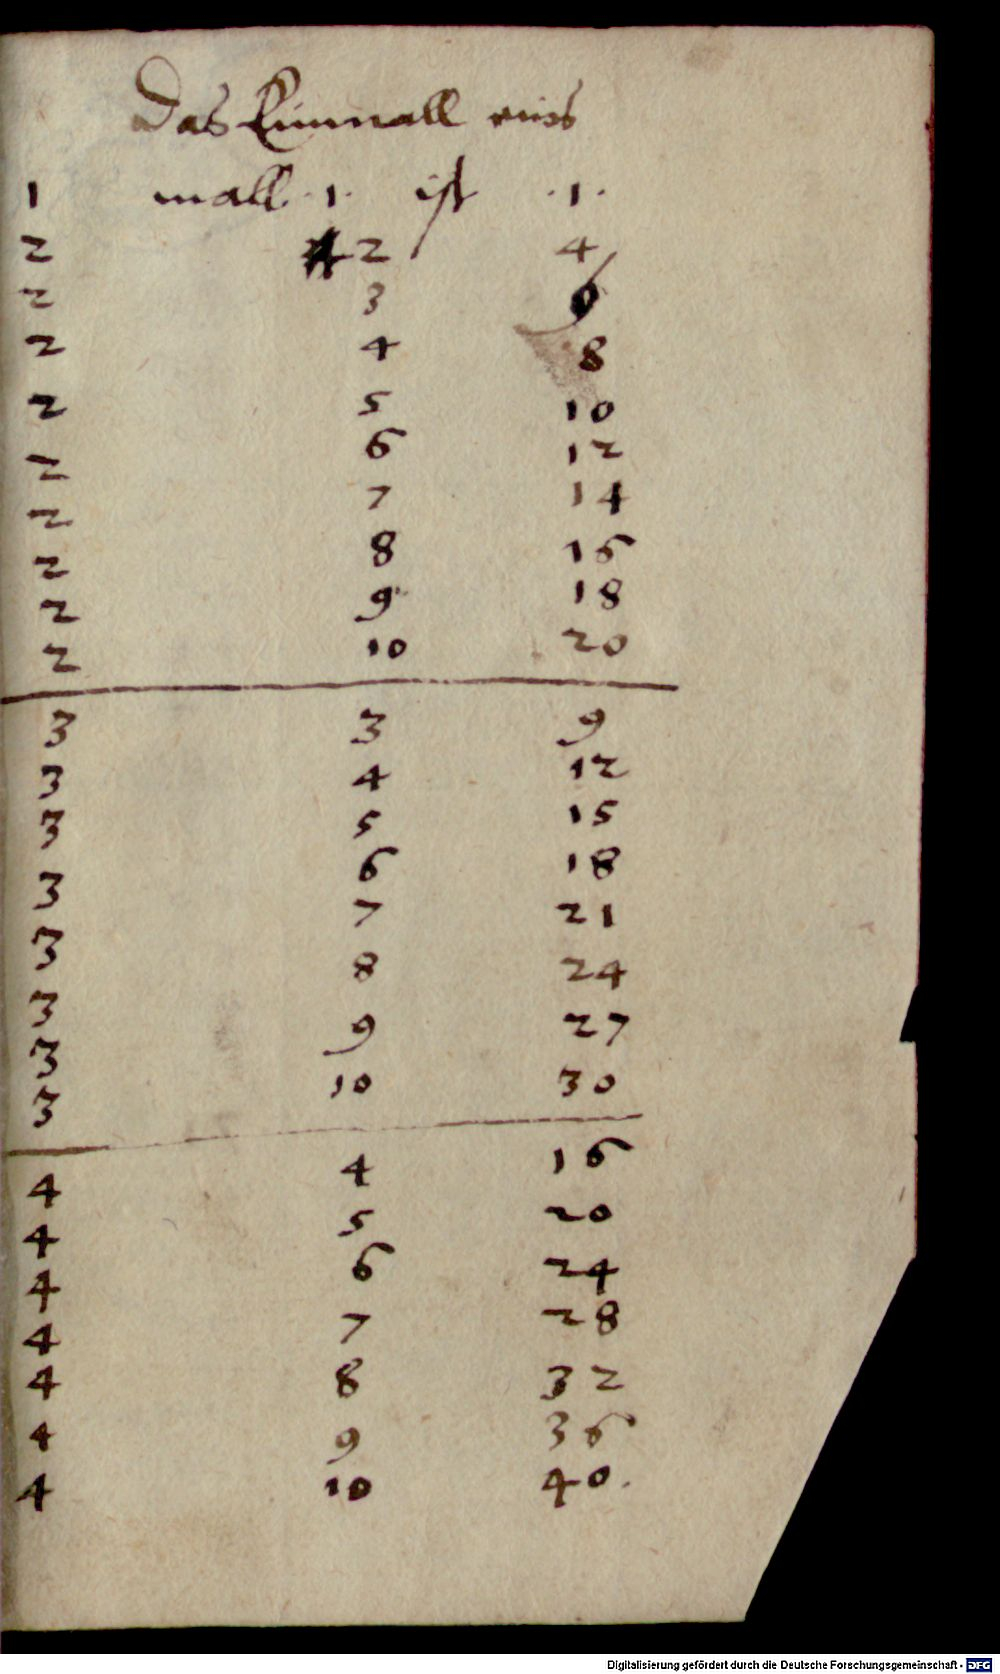 Das Einmall eins
1 mall · 1 · ist · 1 ·
2 2 4
2 3 6
2 4 8
2 5 10
2 6 12
2 7 14
2 8 16
2 9 18
2 10 20
3 3 9
3 4 12
3 5 15
3 6 18
3 7 21
3 8 24
3 9 27
3 10 30
4 4 16
4 5 20
4 6 24
4 7 28
4 8 32
4 9 36
4 10 40.
Digitalisierung gefördert durch die Deutsche Forschungsgemeinschaft - DFG